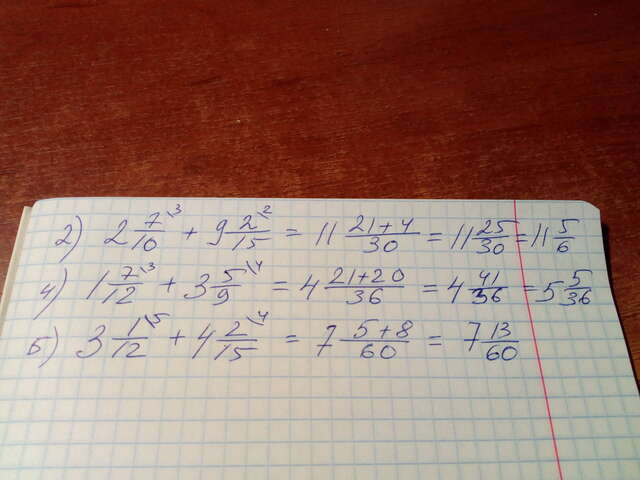 2) 2 7/10 \3 + 9 2/15 \2 = 11 21+4/30 = 11 25/30 = 11 5/6
4) 1 7/12 \3 + 3 5/9 \4 = 4 21+20/36 = 4 41/36 = 5 5/36
Б) 3 1/12 \5 + 4 2/15 \4 = 7 5+8/60 = 7 13/60